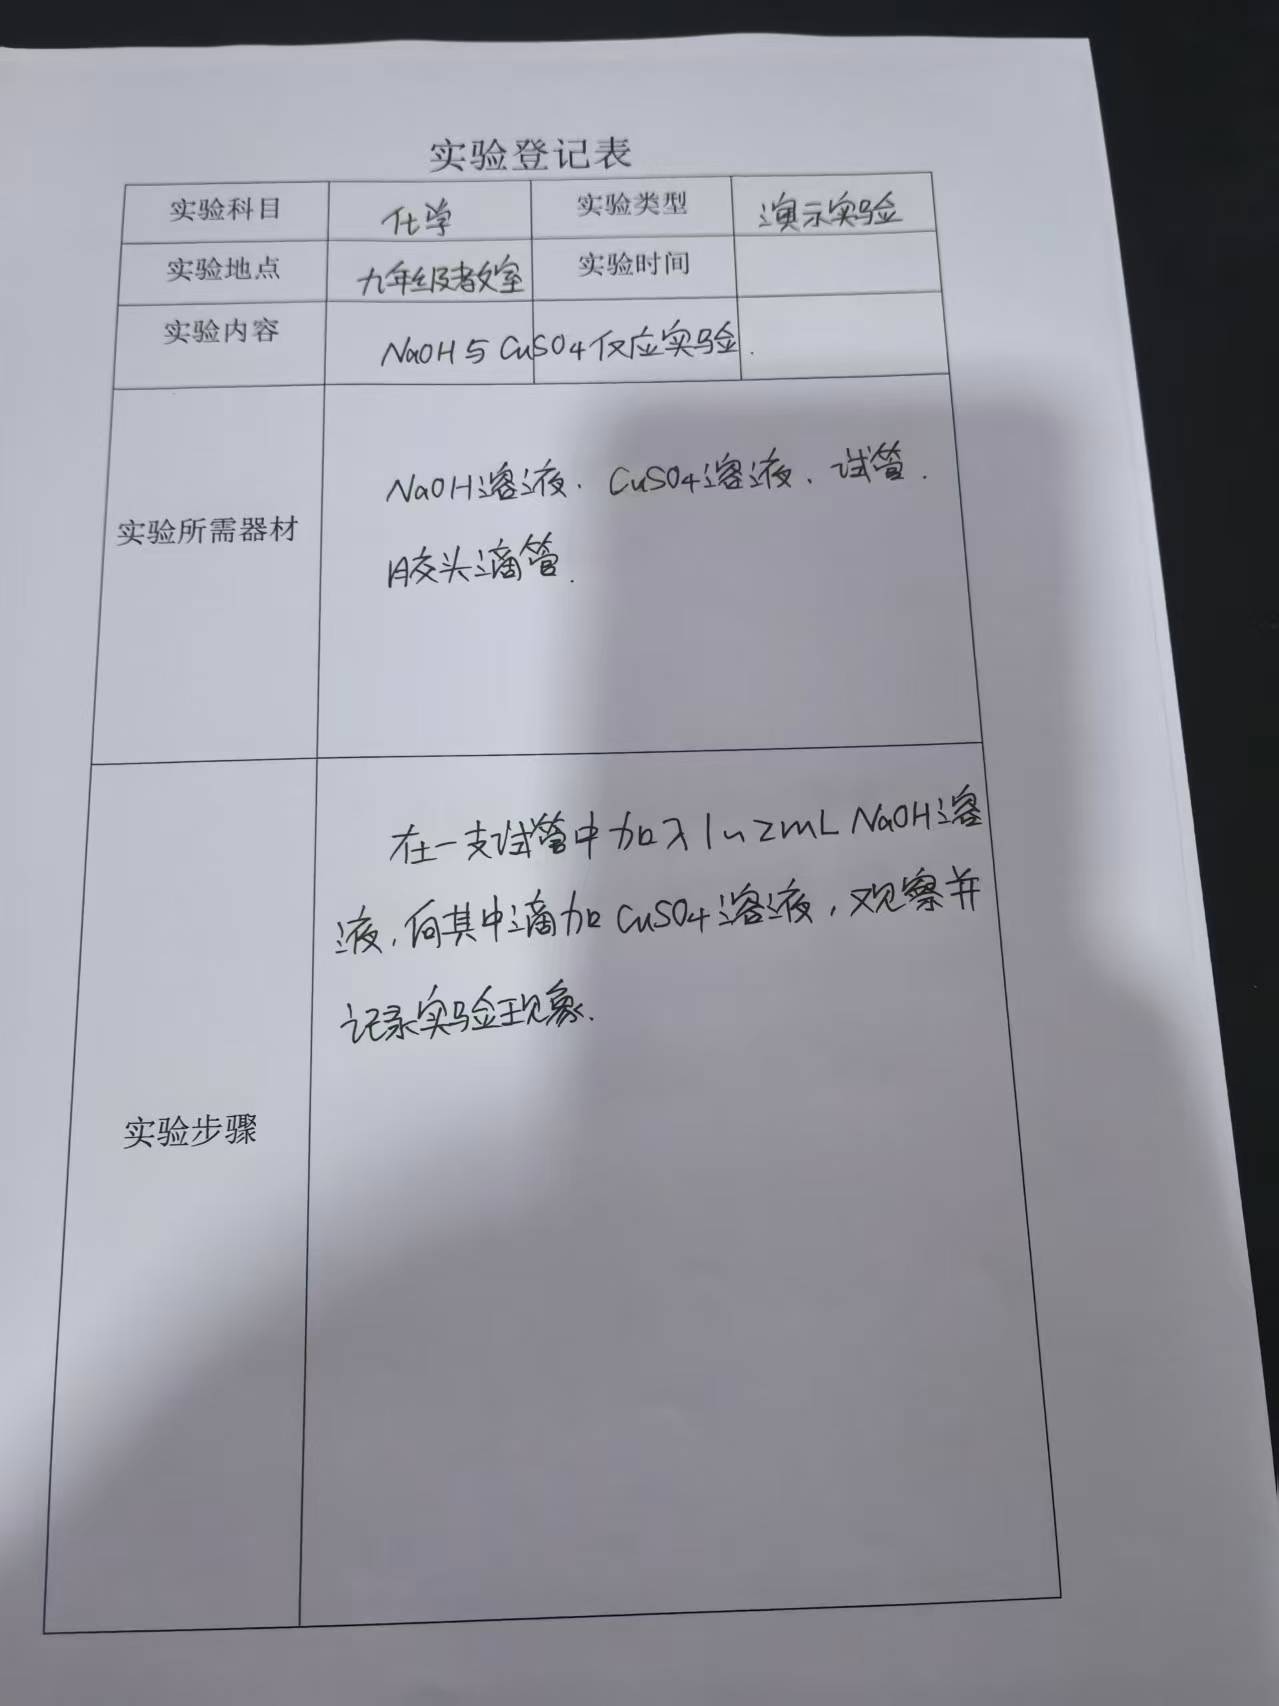 实验登记表
实验科目 化学 实验类型 演示实验
实验地点 九年级教室 实验时间
实验内容 NaOH与CuSO4反应实验.
实验所需器材
NaOH溶液、CuSO4溶液、试管.
胶头滴管.
实验步骤
在一支试管中加入1~2mL NaOH溶
液,向其中滴加CuSO4溶液,观察并
记录实验现象.